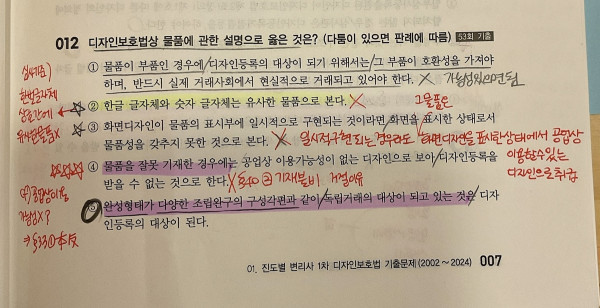 012 디자인보호법상 물품에 관한 설명으로 옳은 것은? (다툼이 있으면 판례에 따름) 53회 기출
① 물품이 부품인 경우에 디자인등록의 대상이 되기 위해서는 그 부품이 호환성을 가져야
하며, 반드시 실제 거래사회에서 현실적으로 거래되고 있어야 한다. 가능성있으면됨
심사기준)
한글글자체
숫자글자체
유사한물품X
② 한글 글자체와 숫자 글자체는 유사한 물품으로 본다.
그 물품은
③ 화면디자인이 물품의 표시부에 일시적으로 구현되는 것이라면 화면을 표시한 상태로서
물품성을 갖추지 못한 것으로 본다. 일시적구현되는 경우라도 화면디자인을 표시한상태에서 공업상
이용할수있는
디자인으로 취급
④ 물품을 잘못 기재한 경우에는 공업상 이용가능성이 없는 디자인으로 보아 디자인등록을
받을 수 없는 것으로 한다. §40② 기재불비 거절이유
가능성X?
⇒ §33①本文
⑤ 완성형태가 다양한 조립완구의 구성각편과 같이 독립거래의 대상이 되고 있는 것은 디자
인등록의 대상이 된다.
01. 진도별 변리사 1차 디자인보호법 기출문제(2002~2024) 007